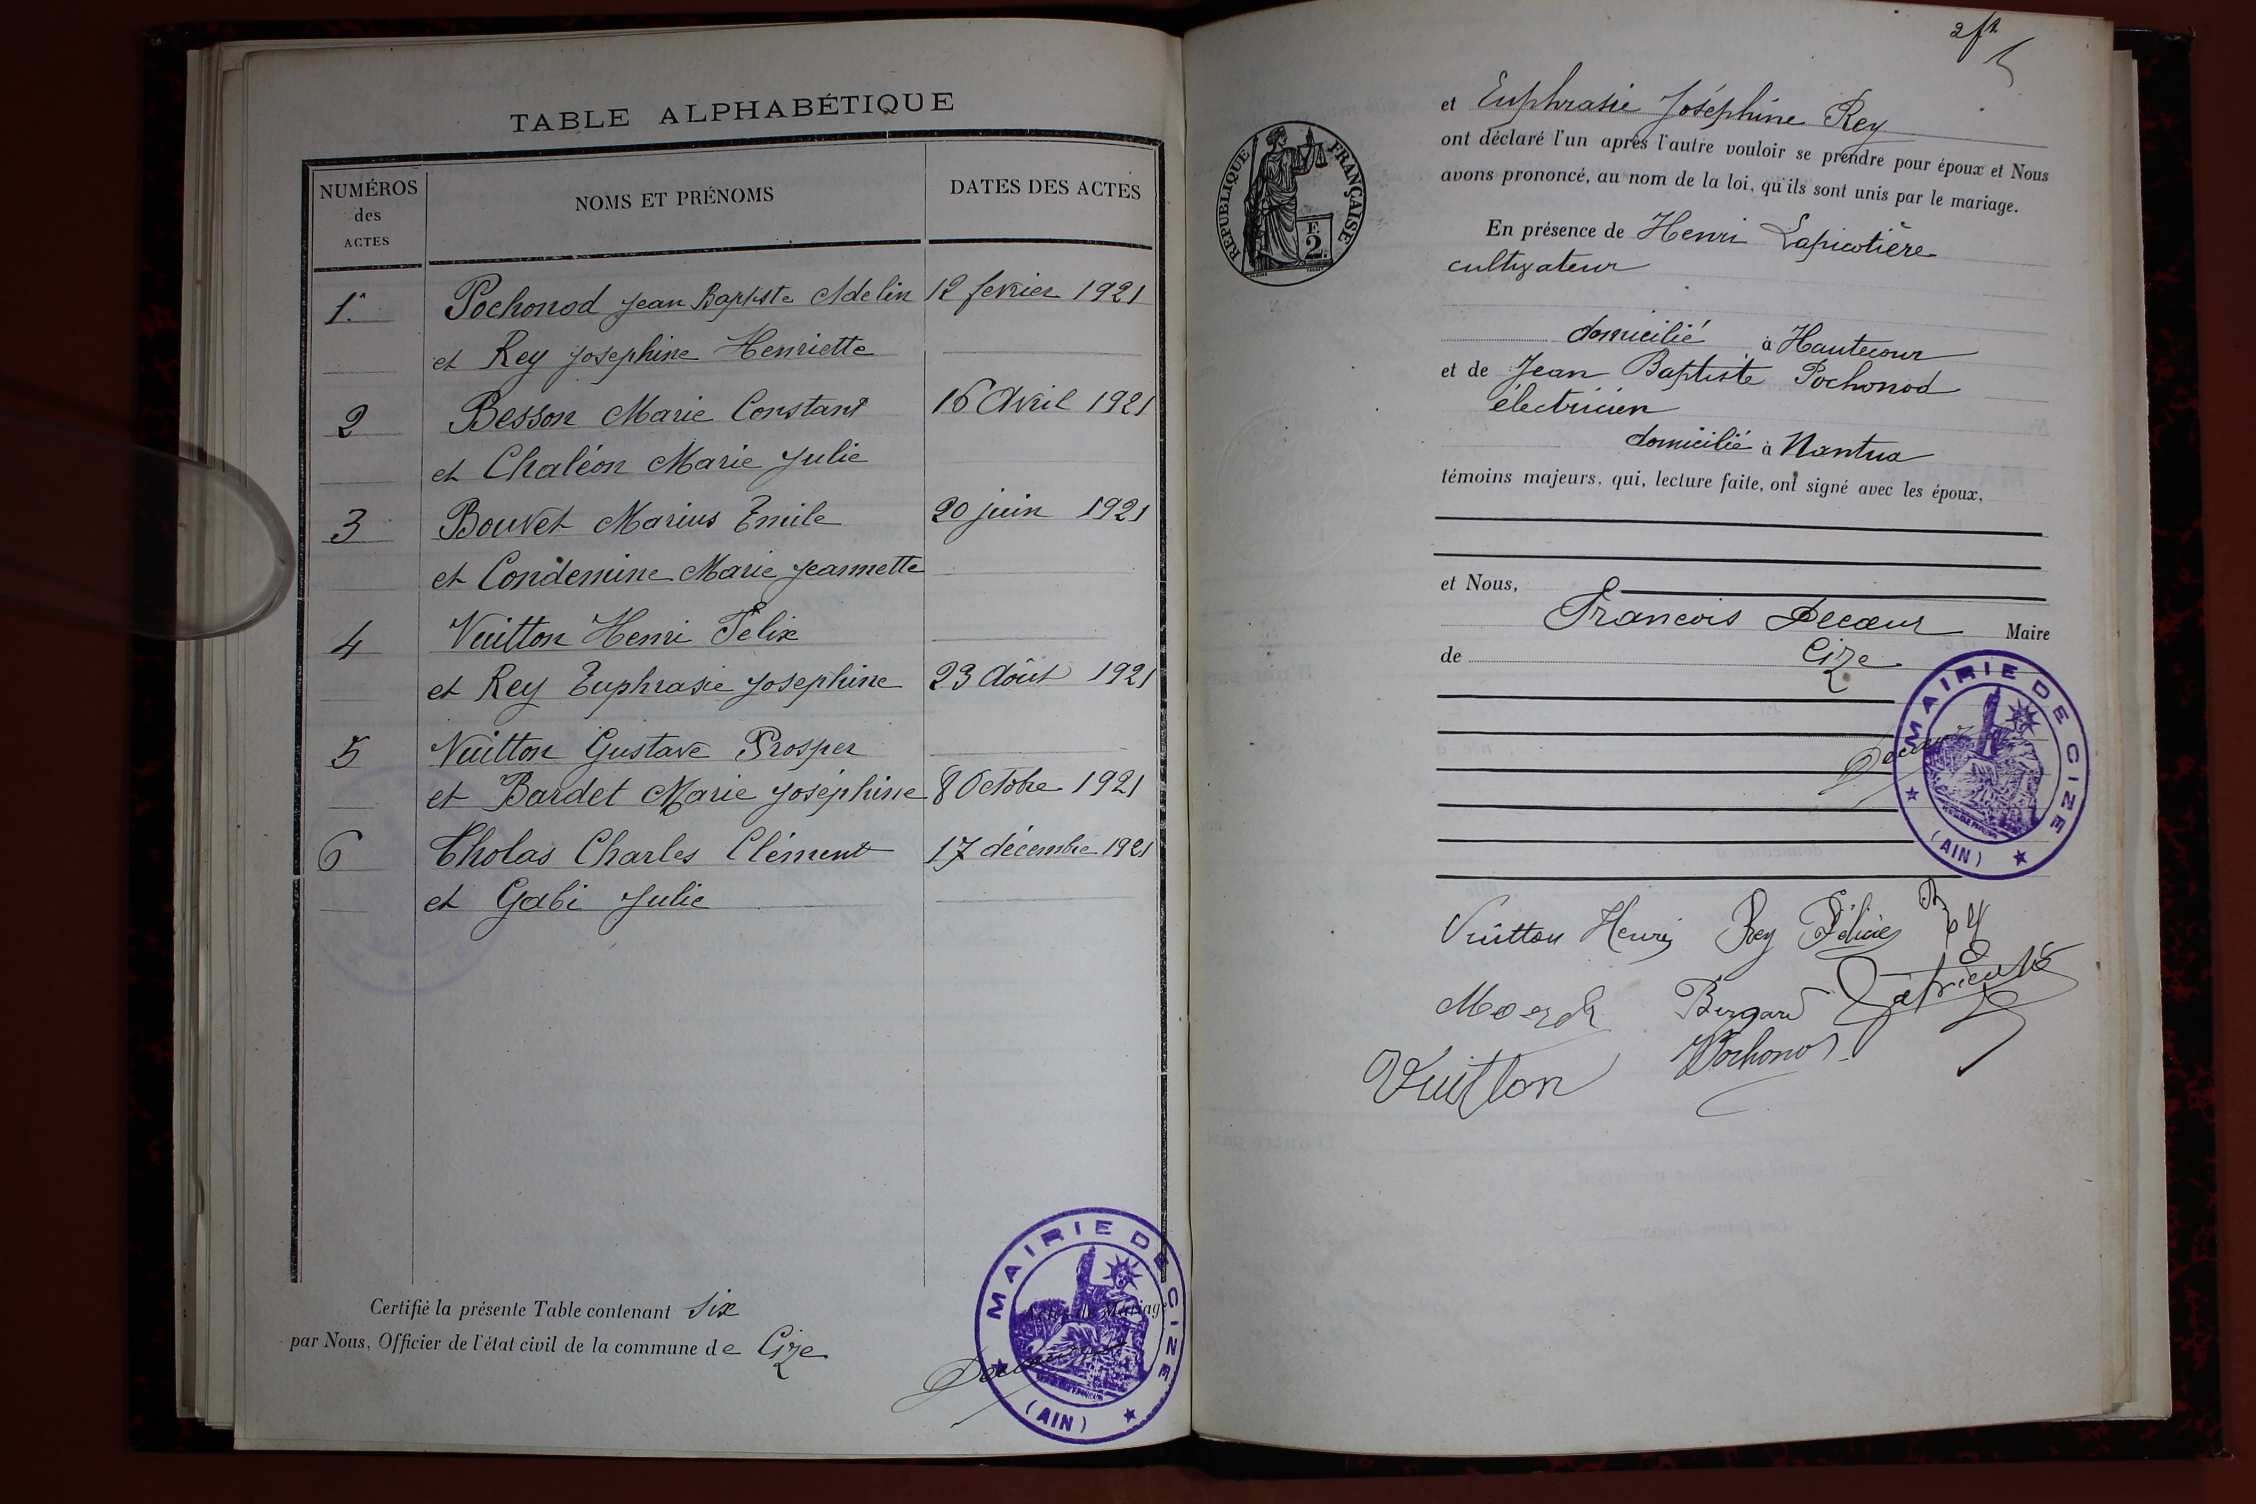 TABLE ALPHABÉTIQUE
NUMÉROS
des
ACTES
NOMS ET PRÉNOMS
DATES DES ACTES
1. Pochonod Jean Baptiste Adelin 12 fevrier 1921
et Rey Josephine Henriette
2 Besson Marie Constant 16 Avril 1921
et Chaléon Marie Julie
3 Bouvet Marius Emile 20 juin 1921
et Condemine Marie Jeannette
4 Vuitton Henri Felix
et Rey Euphrasie Josephine 23 Août 1921
5 Vuitton Gustave Prosper
et Bardet Marie Joséphine 8 Octobre 1921
6 Tholas Charles Clément 17 décembre 1921
et Gabi Julie
Certifié la présente Table contenant Six Actes de Mariage
par Nous, Officier de l'état civil de la commune de Cize
MAIRIE DE CIZE
(AIN)
RÉPUBLIQUE FRANÇAISE
F.
2
et Euphrasie Joséphine Rey
ont déclaré l'un après l'autre vouloir se prendre pour époux et Nous
avons prononcé, au nom de la loi, qu'ils sont unis par le mariage.
En présence de Henri Lapicotière
cultivateur
domicilié à Hautecour
et de Jean Baptiste Pochonod
électricien
domicilié à Nantua
témoins majeurs, qui, lecture faite, ont signé avec les époux,
et Nous,
Francois Decœur Maire
de Cize
Decœur
MAIRIE DE CIZE
(AIN)
Vuitton Henri Rey Félicie Rey
Bergard
Pochonod
Vuitton